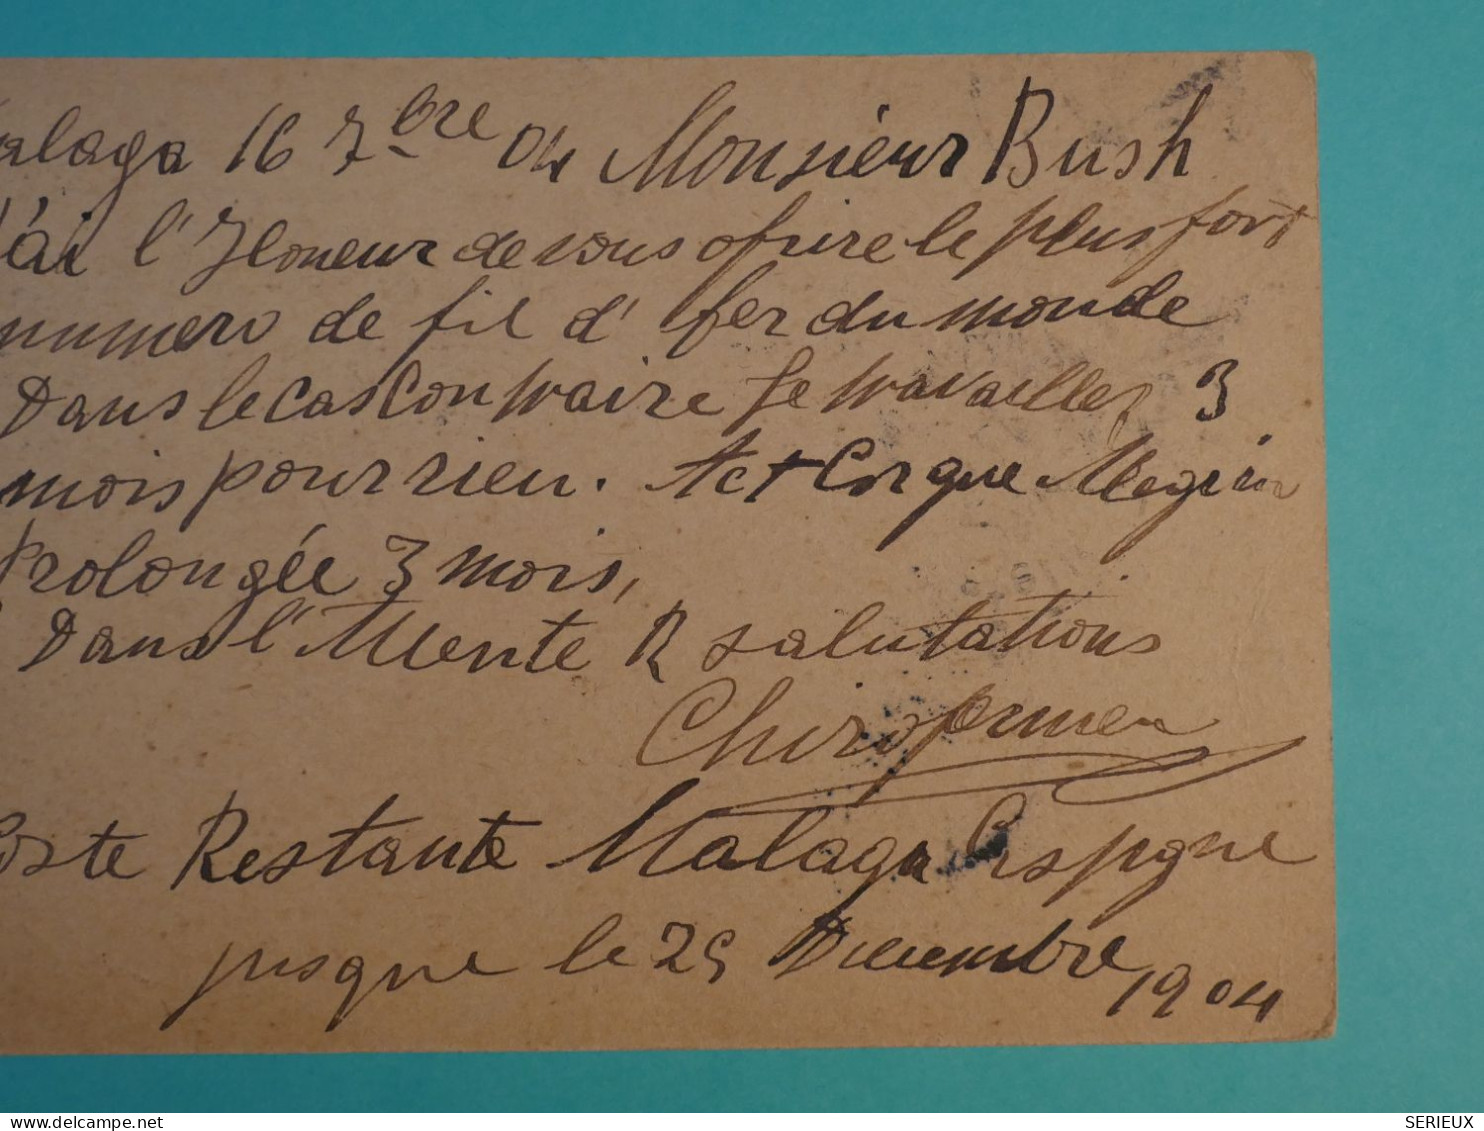 alaga 16 7bre 04 Monsieur Bush
J'ai l'Honeur de vous ofrire le plus fort
numero de fil d' fer du monde
Dans le cas Contraire Je travailler 3
mois pour rien. Act Cirque Alegria
Prolongée 3 mois,
Dans l'Atente R salutations
oste Restante Malaga Espgne
jusque le 25 Decembre 1904
SERIEUX